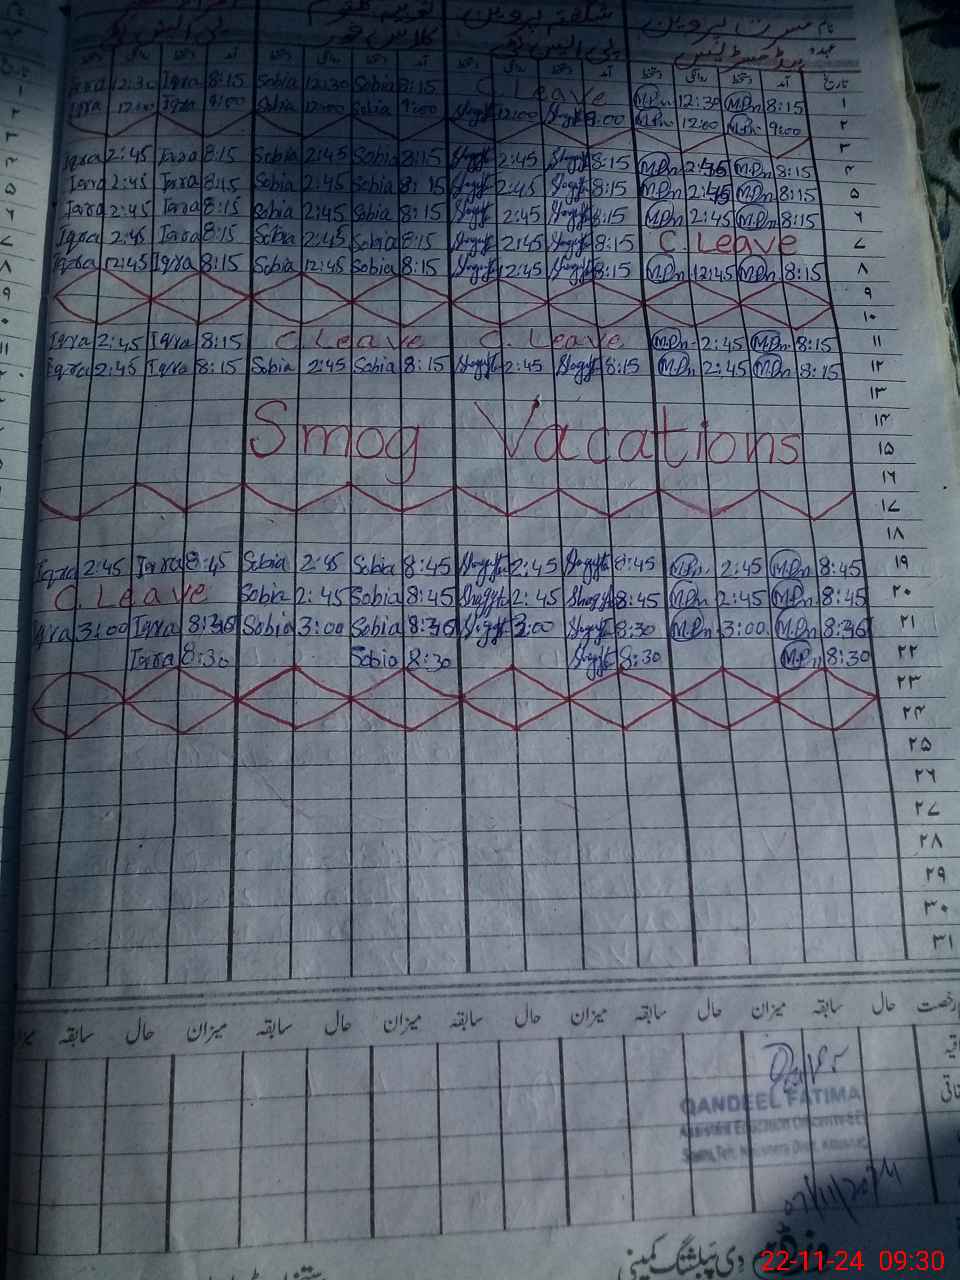 نام مسرت پروین شگفتہ پروین
عہدہ ہیڈ مسٹریس پی ایس ٹی کلاس فور پی ایس ٹی
تاریخ آمد دستخط روانگی دستخط آمد دستخط روانگی دستخط آمد دستخط روانگی دستخط آمد دستخط روانگی دستخط
Iqra 12:30 Iqra 8:15 Sobia 12:30 Sobia 8:15 C. Leave M.Pn 12:30 M.Pn 8:15 ۱
Iqra 12:00 Iqra 9:00 Sobia 12:00 Sobia 9:00 Shagufta 12:00 Shagufta 9:00 M.Pn 12:00 M.Pn 9:00 ۲
۳
Iqra 2:45 Iqra 8:15 Sobia 2:45 Sobia 8:15 Shagufta 2:45 Shagufta 8:15 M.Pn 2:45 M.Pn 8:15 ۴
Iqra 2:45 Iqra 8:15 Sobia 2:45 Sobia 8:15 Shagufta 2:45 Shagufta 8:15 M.Pn 2:45 M.Pn 8:15 ۵
Iqra 2:45 Iqra 8:15 Sobia 2:45 Sobia 8:15 Shagufta 2:45 Shagufta 8:15 M.Pn 2:45 M.Pn 8:15 ۶
Iqra 2:45 Iqra 8:15 Sobia 2:45 Sobia 8:15 Shagufta 2:45 Shagufta 8:15 C. Leave ۷
Iqra 12:45 Iqra 8:15 Sobia 12:45 Sobia 8:15 Shagufta 12:45 Shagufta 8:15 M.Pn 12:45 M.Pn 8:15 ۸
۹
۱۰
Iqra 2:45 Iqra 8:15 C. Leave C. Leave M.Pn 2:45 M.Pn 8:15 ۱۱
Iqra 2:45 Iqra 8:15 Sobia 2:45 Sobia 8:15 Shagufta 2:45 Shagufta 8:15 M.Pn 2:45 M.Pn 8:15 ۱۲
۱۳
۱۴
Smog Vacations ۱۵
۱۶
۱۷
۱۸
Iqra 2:45 Iqra 8:45 Sobia 2:45 Sobia 8:45 Shagufta 2:45 Shagufta 8:45 M.Pn 2:45 M.Pn 8:45 ۱۹
C. Leave Sobia 2:45 Sobia 8:45 Shagufta 2:45 Shagufta 8:45 M.Pn 2:45 M.Pn 8:45 ۲۰
Iqra 3:00 Iqra 8:30 Sobia 3:00 Sobia 8:30 Shagufta 3:00 Shagufta 8:30 M.Pn 3:00 M.Pn 8:30 ۲۱
Iqra 8:30 Sobia 8:30 Shagufta 8:30 M.Pn 8:30 ۲۲
۲۳
۲۴
۲۵
۲۶
۲۷
۲۸
۲۹
۳۰
۳۱
رخصت حال سابقہ میزان حال سابقہ میزان حال سابقہ میزان حال سابقہ میزان حال سابقہ
QANDEEL FATIMA
Assistant Education Officer
07/11/2024
دی پبلشنگ کمپنی
22-11-24 09:30